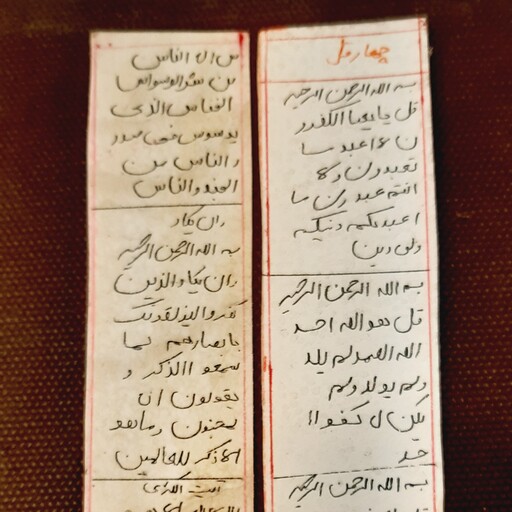 چهار قل
بسم الله الرحمن الرحیم
قل یا یها الکفرو
ن لا اعبد ما
تعبدون ولا
انتم عبدون ما
اعبد لکم دینکم
ولی دین
بسم الله الرحمن الرحیم
قل هو الله احد
الله الصمد لم یلد
ولم یولد ولم
یکن ل کفوا ا
حد
بسم الله الرحمن الرحیم
س اله الناس
من شر الوسواس
الخناس الذی
یوسوس فی صدو
ر الناس من
الجنه والناس
وان یکاد
بسم الله الرحمن الرحیم
وان یکاد الذین
کفروا لیزلقونک
بابصارهم لما
سمعو االذکر و
یقولون ان
لمجنون وما هو
الا ذکر للعالمین
آیت الکرسی